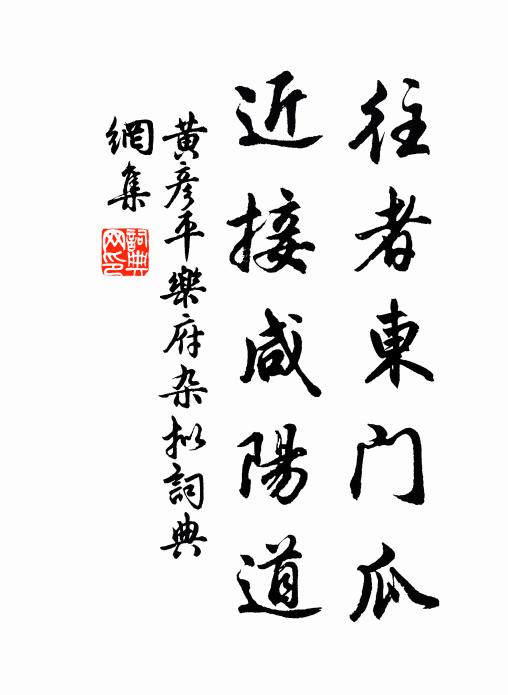 往者東门瓜
近接咸陽道
黄彦平樂府杂拟詞典
網集
詞典網印